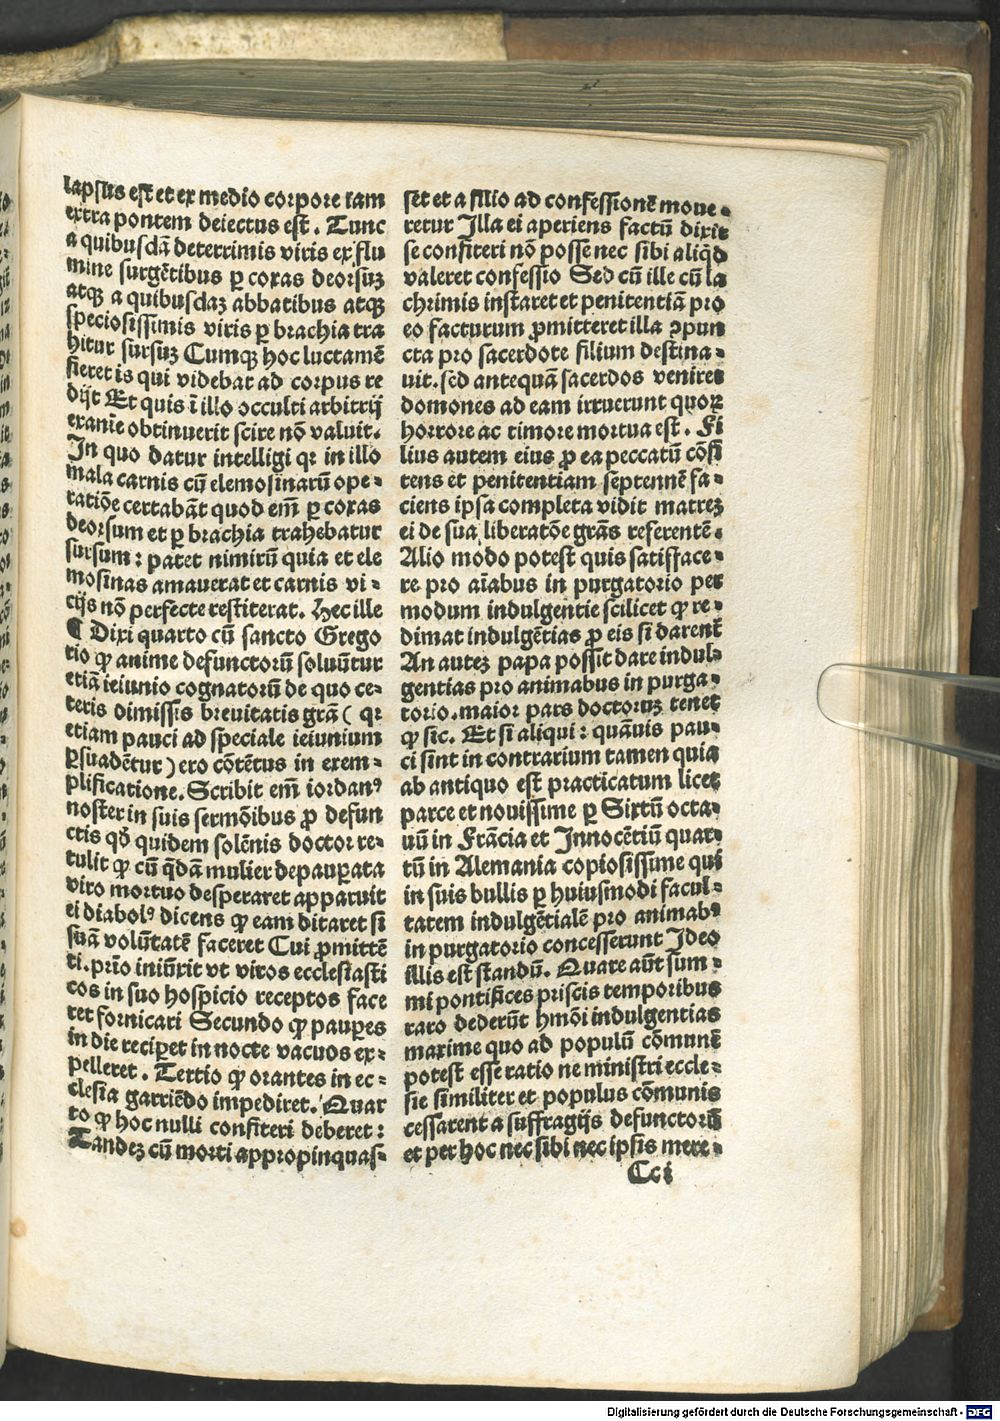 lapsus est et ex medio corpore iam
extra pontem deiectus est. Tunc
a quibusdā deterrimis viris ex flu
mine surgētibus ꝑ coxas deorsuꝫ
atqꝫ a quibusdaꝫ abbatibus atqꝫ
speciosissimis viris ꝑ brachia tra
hitur sursuꝫ Cumqꝫ hoc luctamē
fieret is qui videbat ad corpus re
dijt Et quis ī illo occulti arbitrij
exanīe obtinuerit scire nō valuit.
In quo datur intelligi qꝛ in illo
mala carnis cū elemosinarū ope⸗
ratiōe certabāt quod em̄ ꝑ coxas
deorsum et ꝑ brachia trahebatur
sursum: patet nimirū quia et ele
mosinas amauerat et carnis vi⸗
cijs nō perfecte restiterat. Hec ille
¶ Dixi quarto cū sancto Grego
rio ꝙ anime defunctorū soluūtur
etiā ieiunio cognatorū de quo ce⸗
teris dimissis breuitatis grā (qꝛ
etiam pauci ad speciale ieiunium
ꝑsuadētur) ero cōtētus in exem⸗
plificatione. Scribit em̄ iordanꝰ
noster in suis sermōibus ꝓ defun
ctis qd̄ quidem solēnis doctor re⸗
tulit ꝙ cū qdā mulier depauꝑata
viro mortuo desperaret apparuit
ei diabolꝰ dicens ꝙ eam ditaret si
suā volūtatē faceret Cui ꝓmittē
ti. prīo iniūxit vt viros ecclesiasti
cos in suo hospicio receptos face
ret fornicari Secundo ꝙ pauꝑes
in die reciꝑet in nocte vacuos ex⸗
pelleret. Tertio ꝙ orantes in ec⸗
clesia garriēdo impediret. Quar
to ꝙ hoc nulli confiteri deberet:
Tandeꝫ cū morti appropinquas⸗
set et a filio ad confessionē moue⸗
retur Illa ei aperiens factū dixit
se confiteri nō posse nec sibi aliqd
valeret confessio Sed cū ille cū la
chrimis instaret et penitentiā pro
eo facturum ꝓmitteret illa ꝯpun
cta pro sacerdote filium destina⸗
uit. sed antequā sacerdos veniret
domones ad eam irruerunt quoꝝ
horrore ac timore mortua est. Fi
lius autem eius ꝓ ea peccatū cōfi
tens et penitentiam septennē fa⸗
ciens ipsa completa vidit matreꝫ
ei de sua liberatōe grās referentē.
Alio modo potest quis satisface⸗
re pro aīabus in purgatorio per
modum indulgentie scilicet ꝙ re⸗
dimat indulgētias ꝓ eis si darent̄
An auteꝫ papa possit dare indul⸗
gentias pro animabus in purga⸗
torio. maior pars doctoruꝫ tenet
ꝙ sic. Et si aliqui: quāuis pau⸗
ci sint in contrarium tamen quia
ab antiquo est practicatum licet
parce et nouissime ꝑ Sixtū octa⸗
uū in Frācia et Innocētiū quar⸗
tū in Alemania copiosissime qui
in suis bullis ꝑ huiusmodi facul⸗
tatem indulgētialē pro animabꝰ
in purgatorio concesserunt Ideo
illis est standū. Quare aūt sum⸗
mi pontifices priscis temporibus
raro dederūt hmōi indulgentias
maxime quo ad populū cōmunē
potest esse ratio ne ministri eccle⸗
sie similiter et populus cōmunis
cessarent a suffragijs defunctorū
et per hoc nec sibi nec ipsis mere⸗
Cci
Digitalisierung gefördert durch die Deutsche Forschungsgemeinschaft - DFG